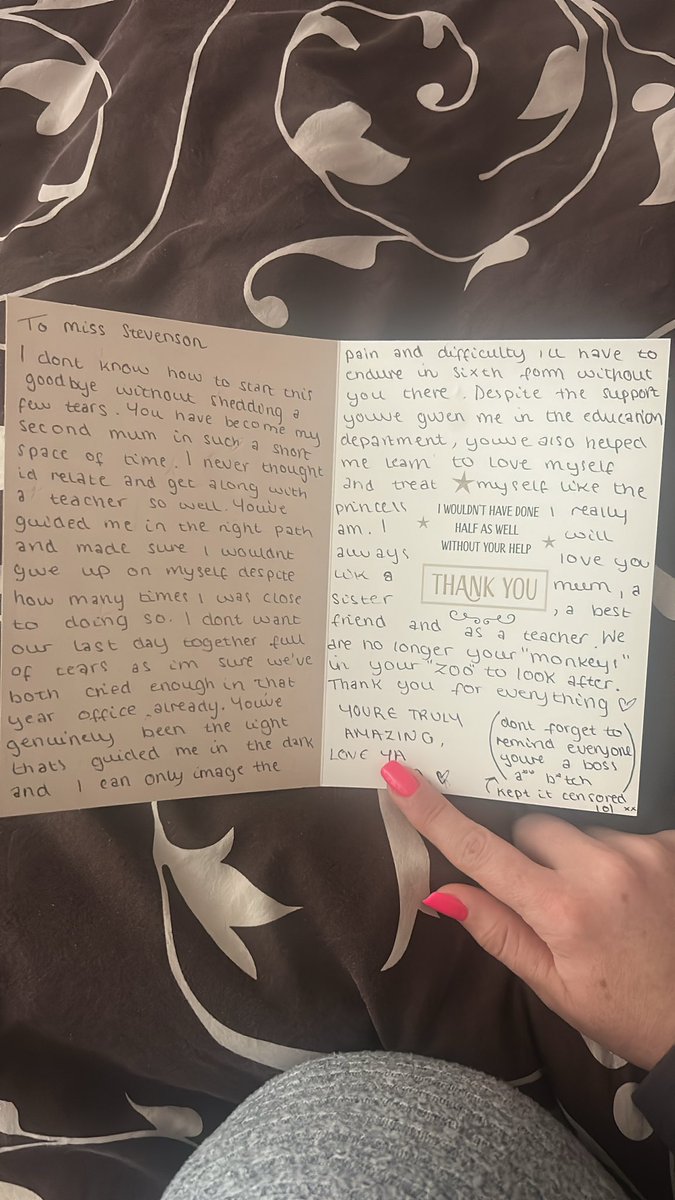 To Miss Stevenson
I dont know how to start this
goodbye without shedding a
few tears. You have become my
second mum in such a short
space of time. I never thought
id relate and get along with
a teacher so well. You've
guided me in the right path
and made sure I wouldnt
give up on myself despite
how many times I was close
to doing so. I dont want
our last day together full
of tears as im sure we've
both cried enough in that
year office already. You've
genuinely been the light
thats guided me in the dark
and I can only image the
pain and difficulty ill have to
endure in sixth form without
you there. Despite the support
youve given me in the education
department, youve also helped
me learn to love myself
and treat myself like the
princess I really
am. I will
always love you
like a mum, a
sister, a best
friend and as a teacher. We
are no longer your "monkeys"
in your "zoo" to look after.
Thank you for everything ♡
YOURE TRULY
AMAZING,
LOVE YA
♡
(dont forget to
remind everyone
youre a boss
a** b*tch)
↖ kept it censored
lol xx
I WOULDN'T HAVE DONE
HALF AS WELL
WITHOUT YOUR HELP
THANK YOU